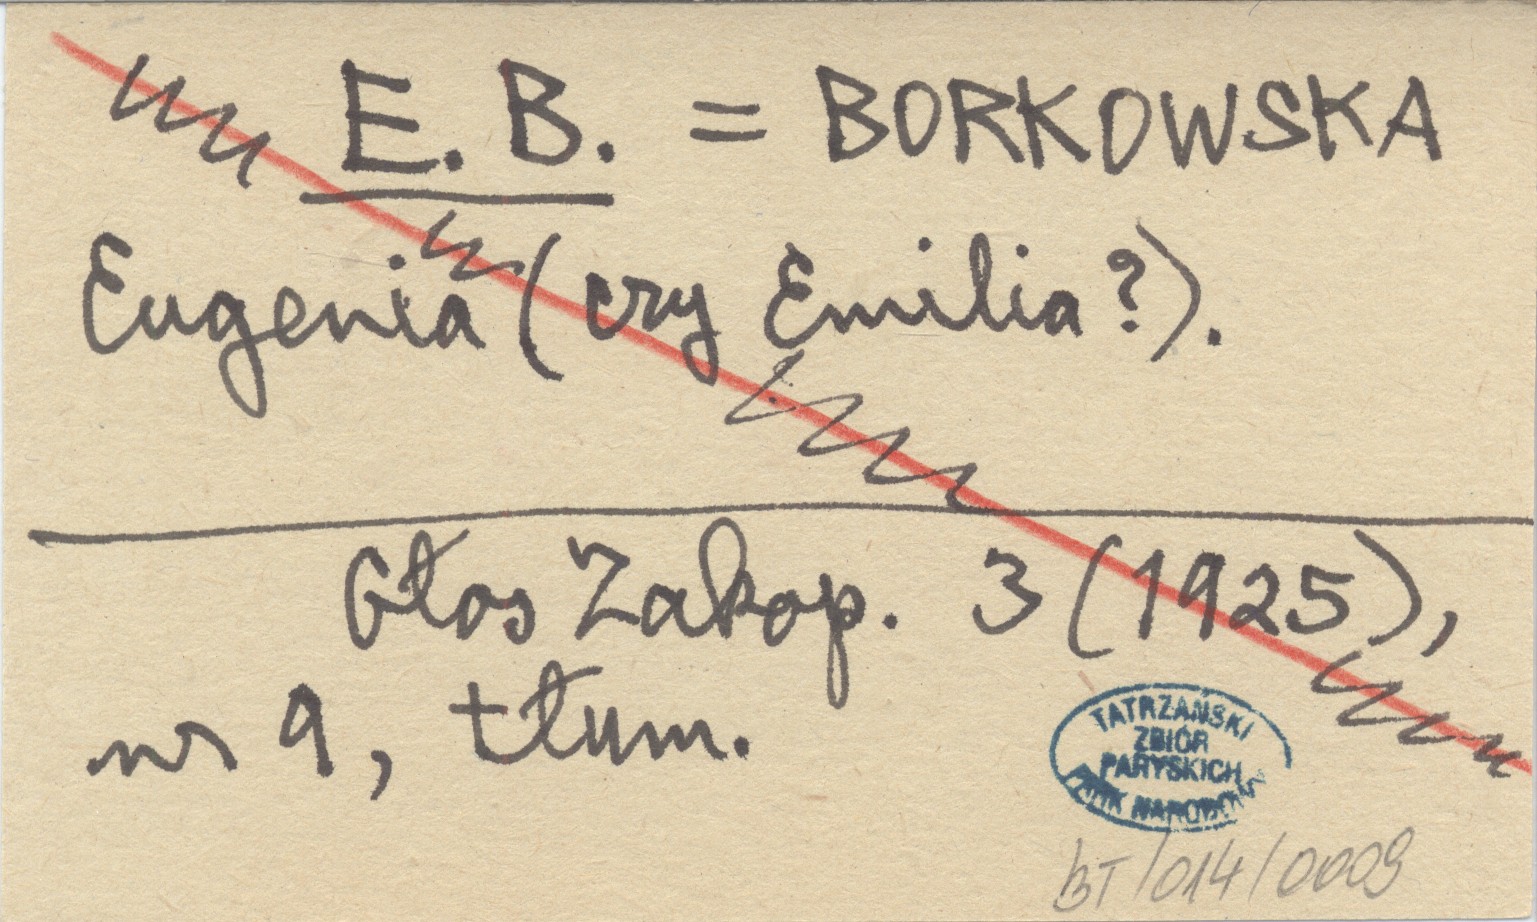 E. B. = BORKOWSKA
Eugenia (czy Emilia?).
Głos Zakop. 3 (1925),
nr 9, tłum.
TATRZAŃSKI
ZBIÓR
PARYSKICH
PARK NARODOWY
BT/014/0009